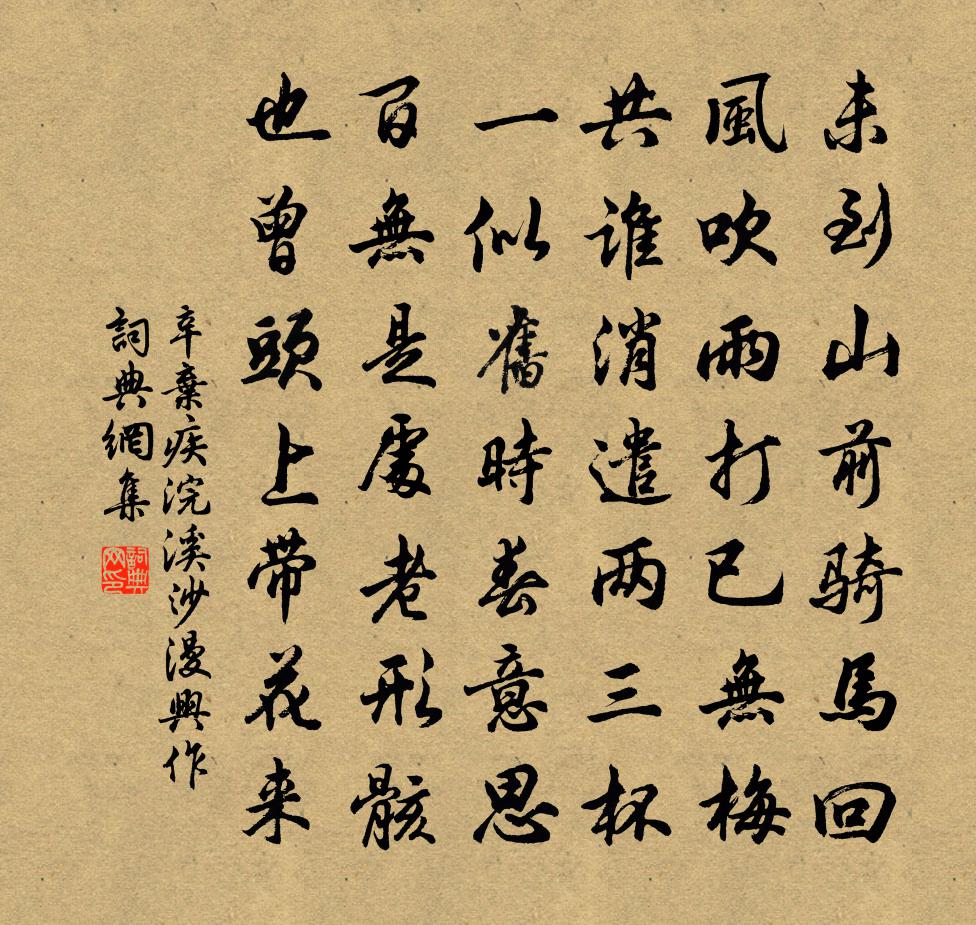 未到山前騎馬回
風吹雨打已無梅
共誰消遣两三杯
一似舊時春意思
百無是處老形骸
也曾頭上帶花来
辛棄疾浣溪沙漫興作
詞典網集
詞典网印